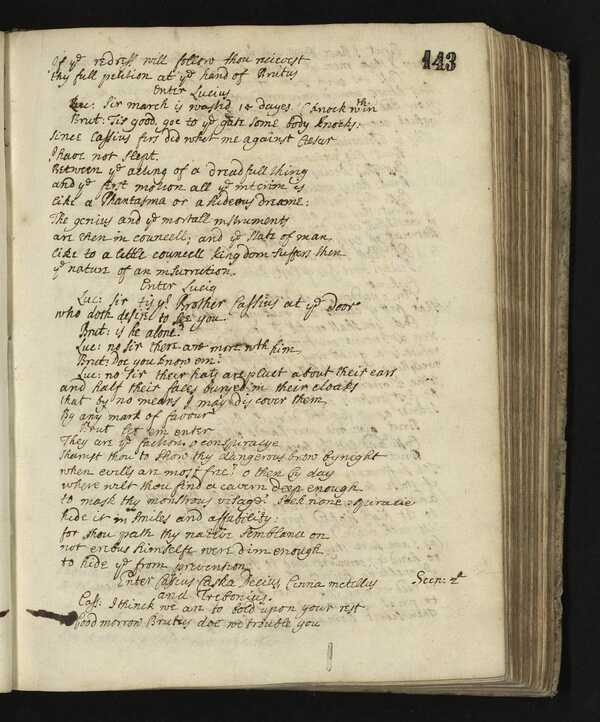 143
If ye redress will follow thou receivest
thy full petition at ye hand of Brutus
Enter Lucius
Luc: Sir march is wasted 14 dayes (knock wthin
Brut: Tis good. goe to ye gate some body knocks:
Since Cassius first did whet me against Cæsar
I have not slept.
Between ye acting of a dreadfull thing
and ye first motion all ye interim is
like a Phantasma or a hideous dreame:
The genius and ye mortall instruments
are then in councell; and ye state of man
like to a little kingdom suffers then
ye nature of an insurrection.
Enter Lucius
Luc: Sir tis yr Brother Cassius at ye door
who doth desire to see you.
Brut: is he alone?
Luc: no Sir there are more with him
Brut: doe you know em?
Luc: no Sir their hats are pluct about their ears
and half their faces buryed in their cloaks
that by no means I may discover them
By any mark of favour
Brut let em enter
They are ye faction. o conspiracye
shamst thou to show thy dangerous brow bynight
when evills are most free? o then by day
where wilt thou find a cavern deep enough
to mask thy monstrous visage? seek none
hide it in smiles and affability:
for shou path thy native semblance on
not erebus himselfe were dim enough
to hide ye from prevention
Enter Cassius Caska Decius, Cinna metellus Scen: 2d
and Trebonius.
Cass: I thinck we are to bold upon your rest
good morrow Brutus doe we trouble you